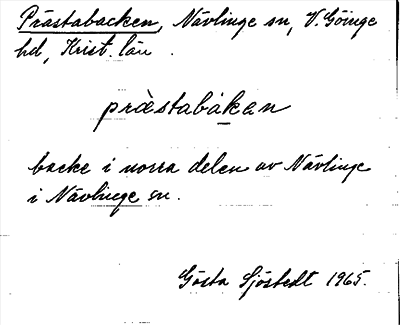 Prästabacken, Nävlinge sn, V. Göinge
hd, Krist. län.
pràstabàkan
backe i norra delen av Nävlinge
i Nävlinge sn.
Gösta Sjöstedt 1965.